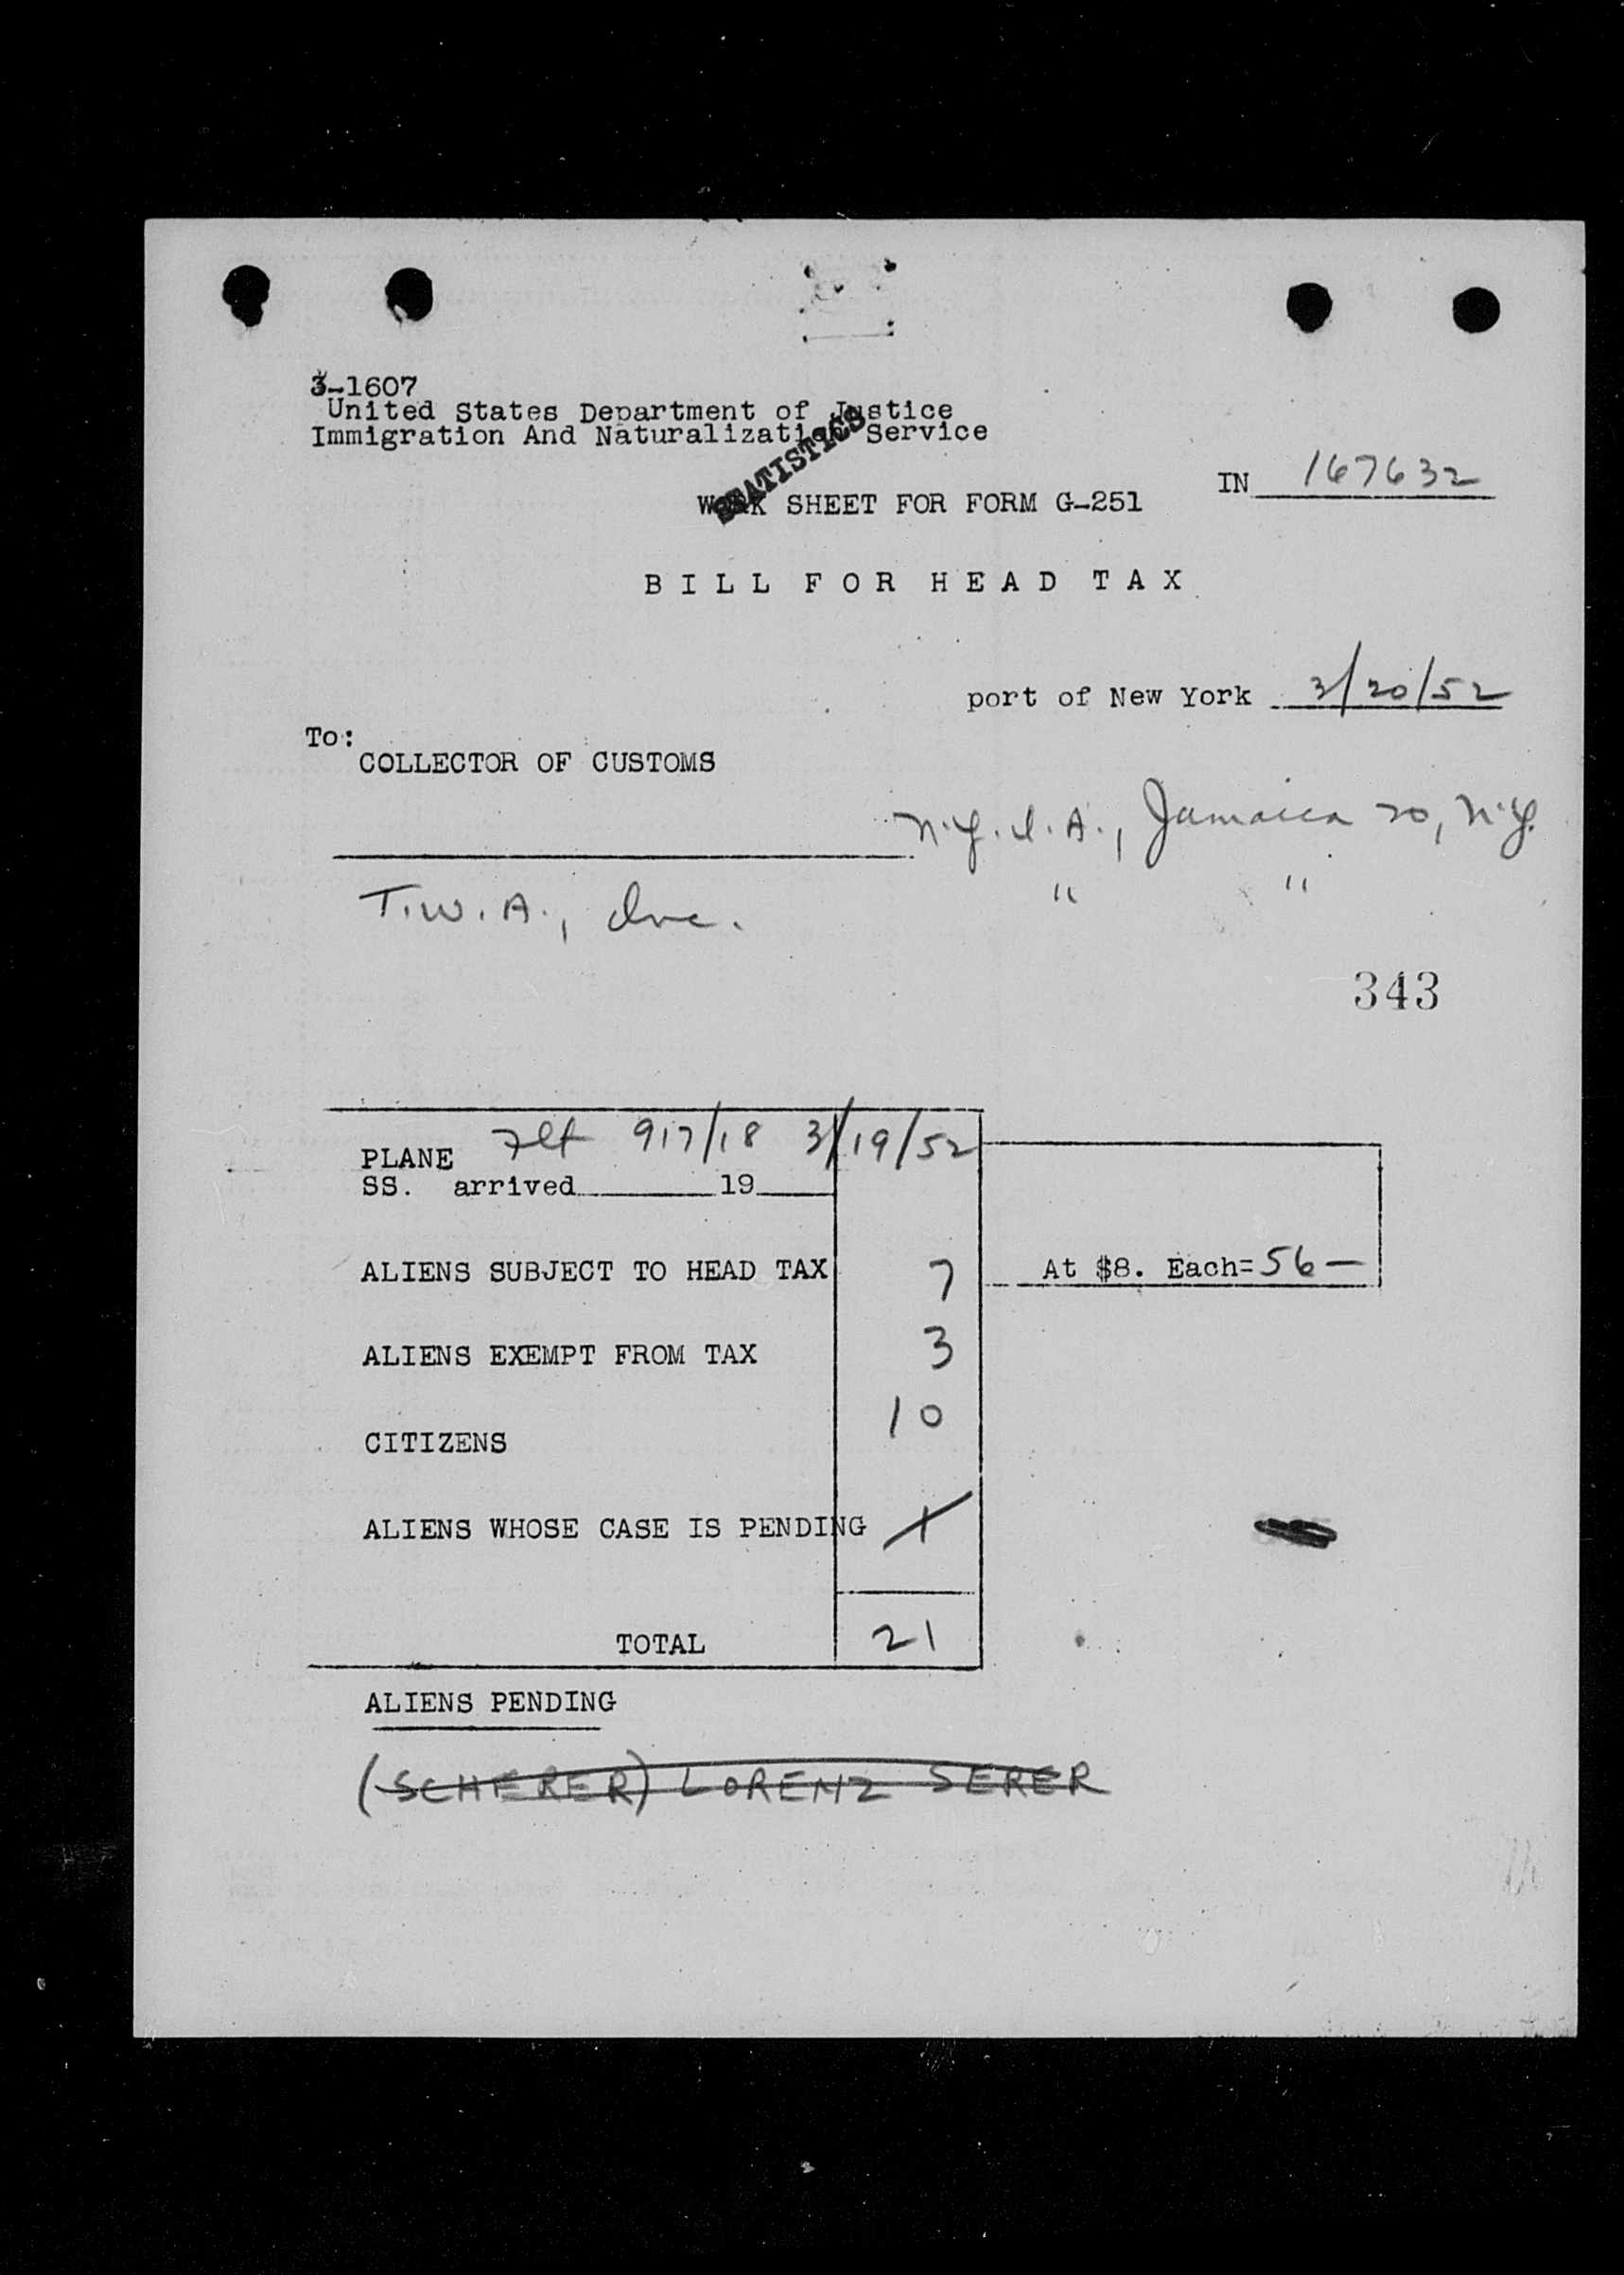 3-1607
United States Department of Justice
Immigration And Naturalization Service
STATISTICS
IN 167632
WORK SHEET FOR FORM G-251
BILL FOR HEAD TAX
port of New York 3/20/52
To:
COLLECTOR OF CUSTOMS
N.Y.I.A., Jamaica 20, N.Y.
T.W.A., Inc. " "
343
PLANE Flt 917/18 3/19/52
SS. arrived 19
ALIENS SUBJECT TO HEAD TAX 7 At $8. Each=56—
ALIENS EXEMPT FROM TAX 3
CITIZENS 10
ALIENS WHOSE CASE IS PENDING 1
TOTAL 21
ALIENS PENDING
(SCHERER) LORENZ SERER